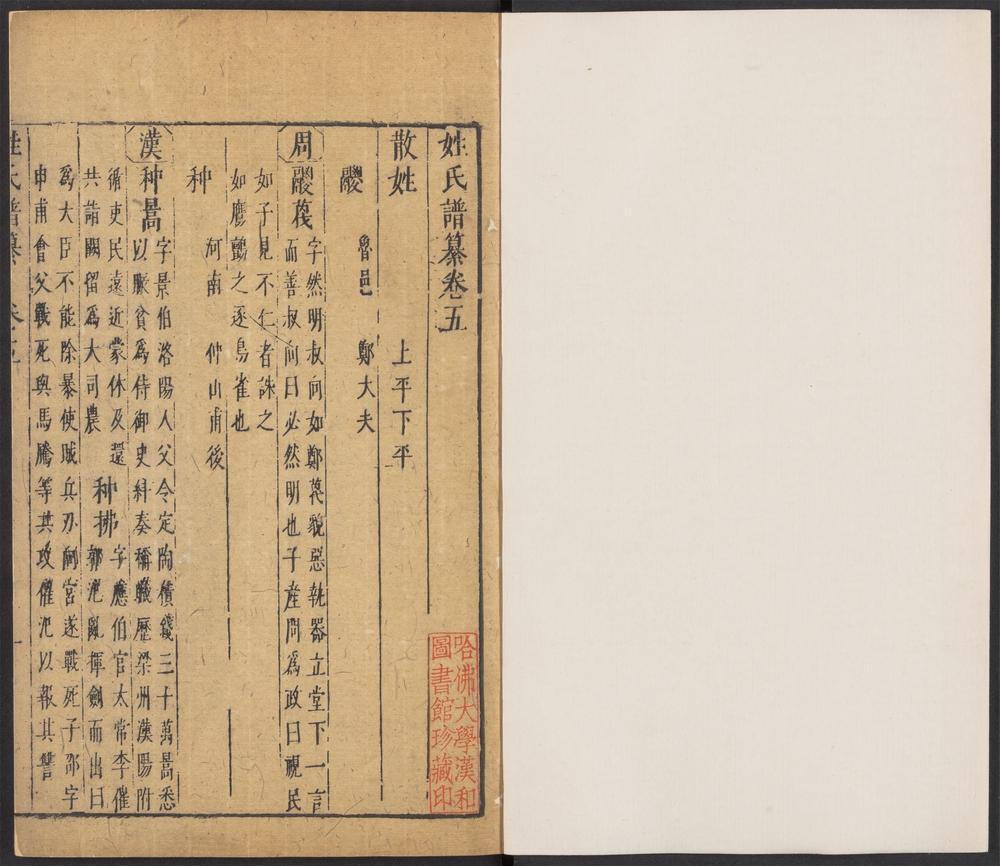 姓氏譜纂卷五
散姓 上平下平
鬷 魯邑 鄭大夫
周 鬷蔑 字然明叔向如鄭蔑貌惡執器立堂下一言
而善叔向曰必然明也子產問為政曰視民
如子見不仁者誅之
如鷹鸇之逐鳥雀也
种 河南 仲山甫後
漢 种暠 字景伯洛陽人父令定陶積錢三十萬暠悉
以賑貧為侍御史糾奏稱職歷梁州漢陽附
循吏民遠近蒙休及還
共詣闕留為大司農
种拂 字應伯官太常李傕
郭汜亂揮劍而出曰
為大臣不能除暴使賊兵刃向宮遂戰死子邵字
申甫會父戰死與馬騰等共攻傕汜以報其讐
姓氏譜纂 卷五 一
哈佛大學漢和
圖書館珍藏印